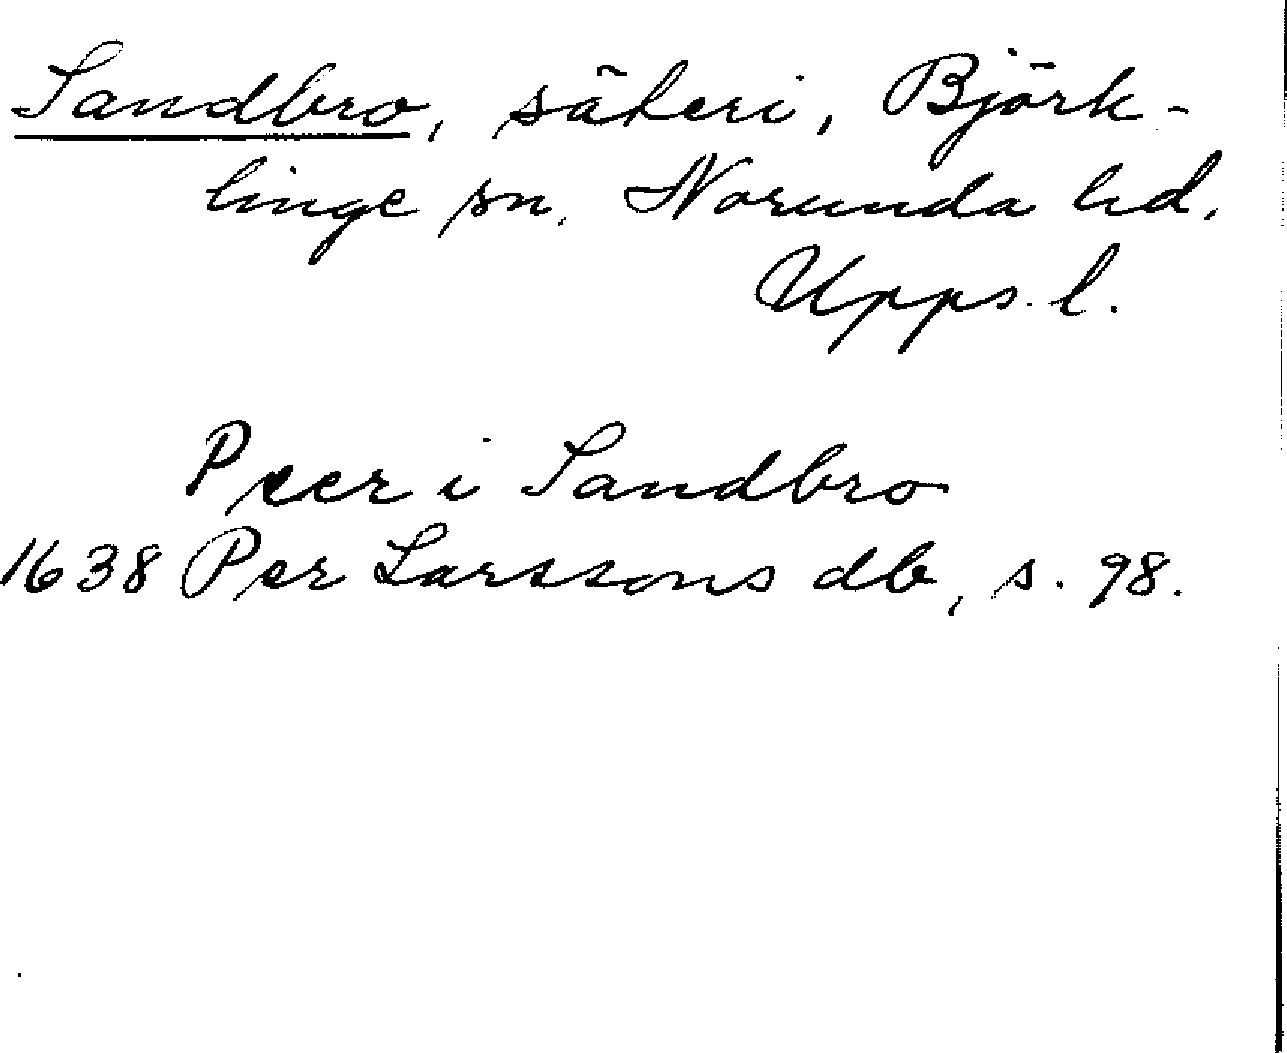 Sandbro, säteri, Björk-
linge sn. Norunda hd.
Upps. l.
Peer i Sandbro
1638 Per Larssons db, s. 98.